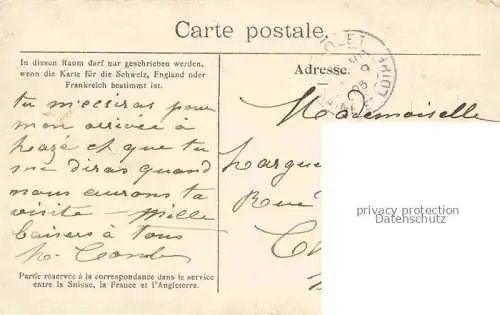 Carte postale.
In diesen Raum darf nur geschrieben werden,
wenn die Karte für die Schweiz, England oder
Frankreich bestimmt ist.
Adresse.
tu m'eciras pour
mon arrivée à
et que tu
me diras quand
nous aurons ta
visite – Mille
baisers à tous
Mademoiselle
Rue
Partie réservée à la correspondance dans le service
entre la Suisse, la France et l'Angleterre.
privacy protection
Datenschutz